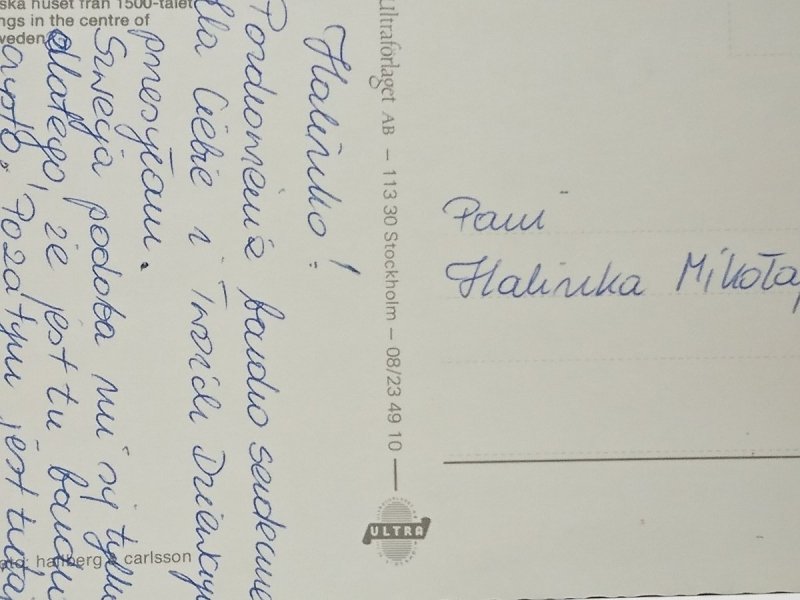 ska huset från 1500-talet
ngs in the centre of
weden
Halinko!
Pozdrowienia bardzo serdeczne
dla Ciebie i Twoich
przesyłam.
Szwecja podoba mi się tylko
dlatego, że jest tu
czysto. Poza tym jest tutaj
Ultraförlaget AB – 113 30 Stockholm – 08/23 49 10
ULTRA
Pani
Halinka Mikołaj
oto: hallberg & carlsson